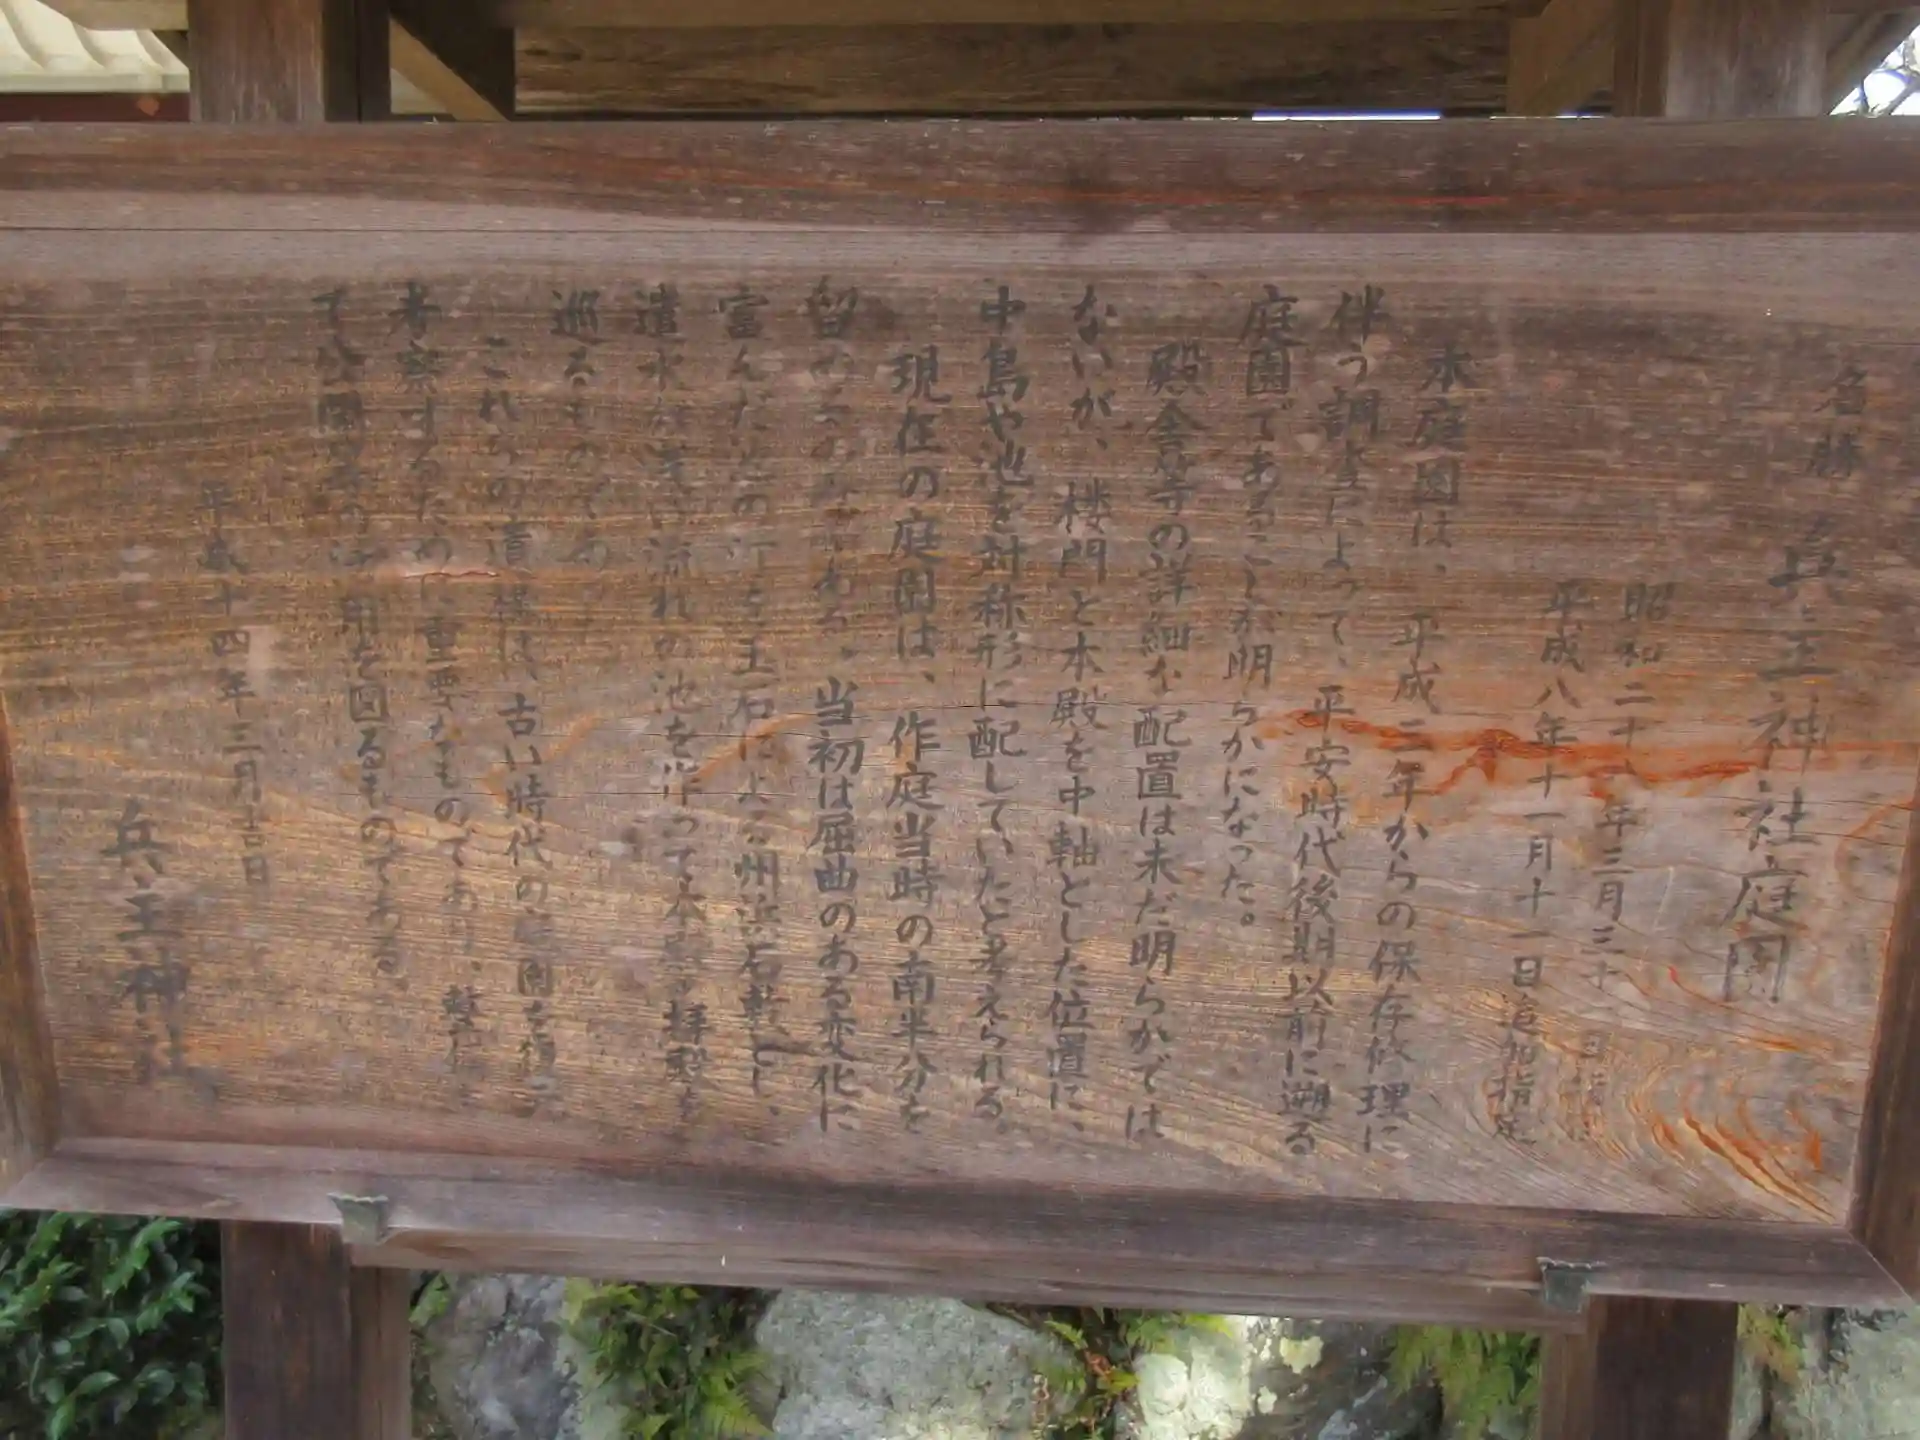 名勝 兵主神社庭園
昭和二十八年三月三十 日指
平成八年十一月十一日追加指定
本庭園は、平成二年からの保存修理に
伴う調査によって、平安時代後期以前に遡る
庭園であることが明らかになった。
殿舎等の詳細な配置は未だ明らかでは
ないが、楼門と本殿を中軸とした位置に、
中島や池を対称形に配していたと考えられる。
現在の庭園は、作庭当時の南半分を
留めるのみである。当初は屈曲のある変化に
富んだ 汀を玉石による州浜石敷とし、
遣水 流れの池を作って本殿や拝殿を
巡るものであ
これらの遺構は、古い時代の庭園を
考察するために重要なものであり、整備
て公開 用を図るものである。
平成十四年三月 日
兵主神社